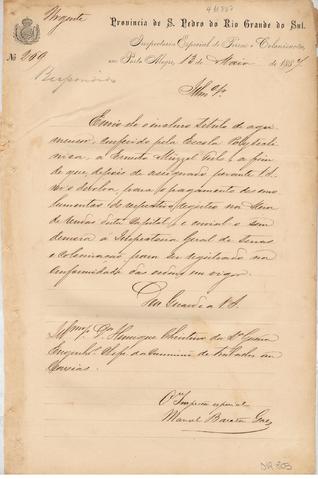 Urgente
411387
Provincia de S. Pedro do Rio Grande do Sul.
Inspectoria Especial de Terras e Colonisação,
em Porto Alegre, 13 de Maio de 1887
Nº 209
Illmo Sr.
Envio o incluso titulo de agri
mensor, conferido pela Escola Polytech
nica, a Ernesto a fim
de que, depois de assignado perante V. S.
m'o devolva, para o pagamento de emo
lumentos do respectivo registro na Mesa
de Rendas desta Capital, e o enviar sem
demora á Inspectoria Geral de Terras
e Colonisação para ser registrado na
conformidade das ordens em vigor.
Deus Guarde a V. S.
Illmo Sr. Dr. Henrique Christino da
Engenhº Chefe da Commissão de em
Caxias.
O Inspector especial
Manoel Barata Góes
DIR 203